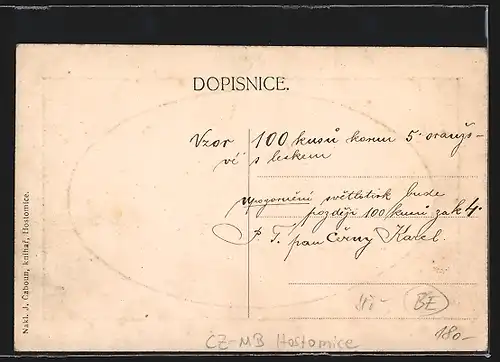 DOPISNICE.
Vzor 100 kusů korun 5· oranžo-
vé s leskem
Upozornění světlotisk bude
později 100 kusů za K 4·
P. T. pan Černý Karel.
Nakl. J. Cahoun, knihař, Hostomice.
BE
180-
CZ-MB Hostomice